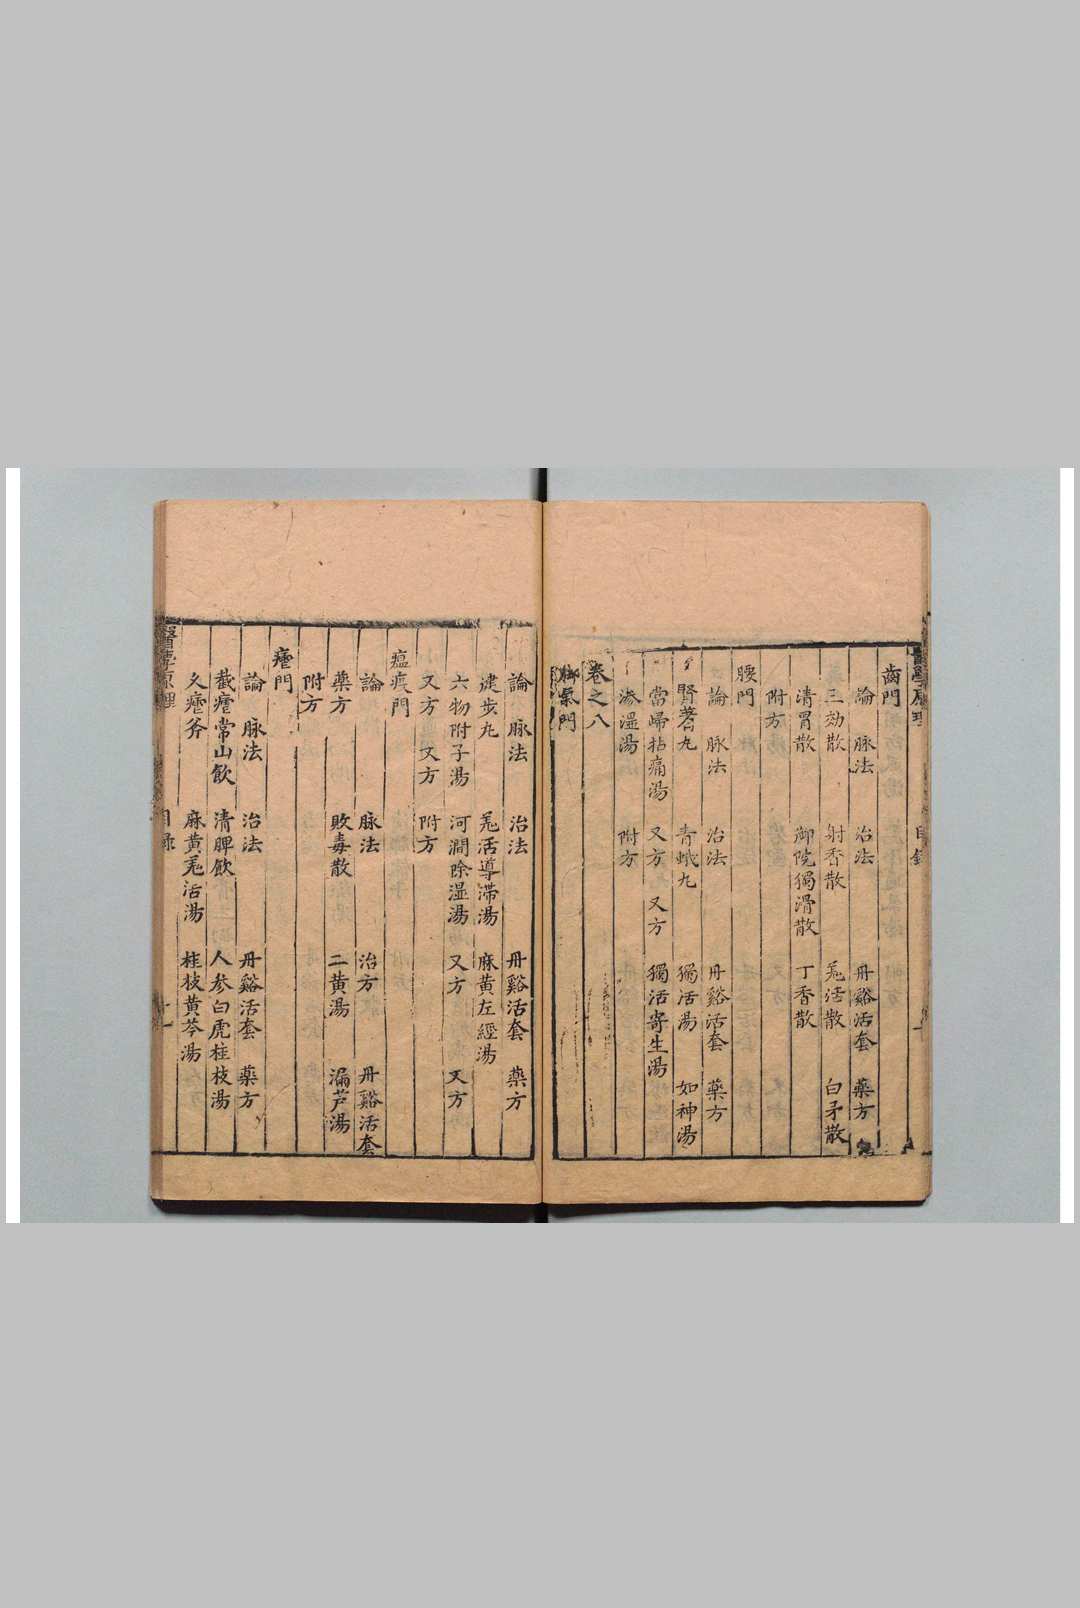 齒門
論 脉法 治法 丹谿活套 藥方
三効散 射香散 羗活散 白芷散
清胃散 御院獨滑散 丁香散
附方
腰門
論 脉法 治法 丹谿活套 藥方
腎著丸 青娥丸 獨活湯 如神湯
當歸拈痛湯 又方 又方 獨活寄生湯
滲湿湯 附方
卷之八
脚氣門
論 脉法 治法 丹谿活套 藥方
健步丸 羗活導滯湯 麻黄左經湯
六物附子湯 河澗除湿湯 又方 又方
又方 又方 附方
瘟疫門
論 脉法 治方 丹谿活套
藥方 敗毒散 二黄湯 漏芦湯
附方
瘧門
論 脉法 治法 丹谿活套 藥方
截瘧常山飲 清脾飲 人参白虎桂枝湯
久瘧斧 麻黄羗活湯 桂枝黄芩湯
醫學原理 目錄 十一